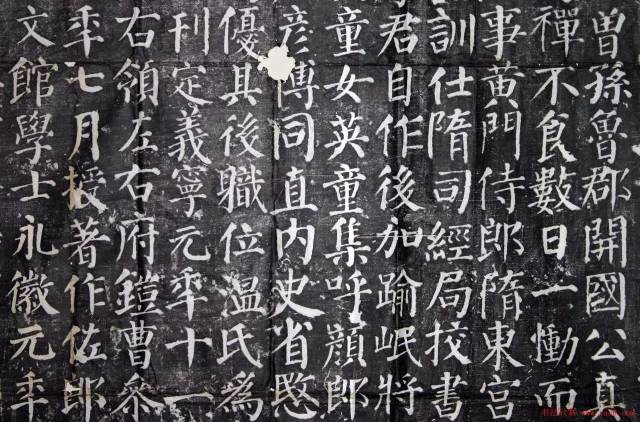 曾孫魯郡開國公真
禪不食數日一慟而
事黃門侍郎隋東宮
訓仕隋司經局挍書
君自作後加踰岷將
童女英童集呼顏郎
彦博同直内史省愍
優其後職位温氏爲
刊定義寧元秊十一
右領左右府鎧曹參
秊七月授著作佐郎
文館學士永徽元秊